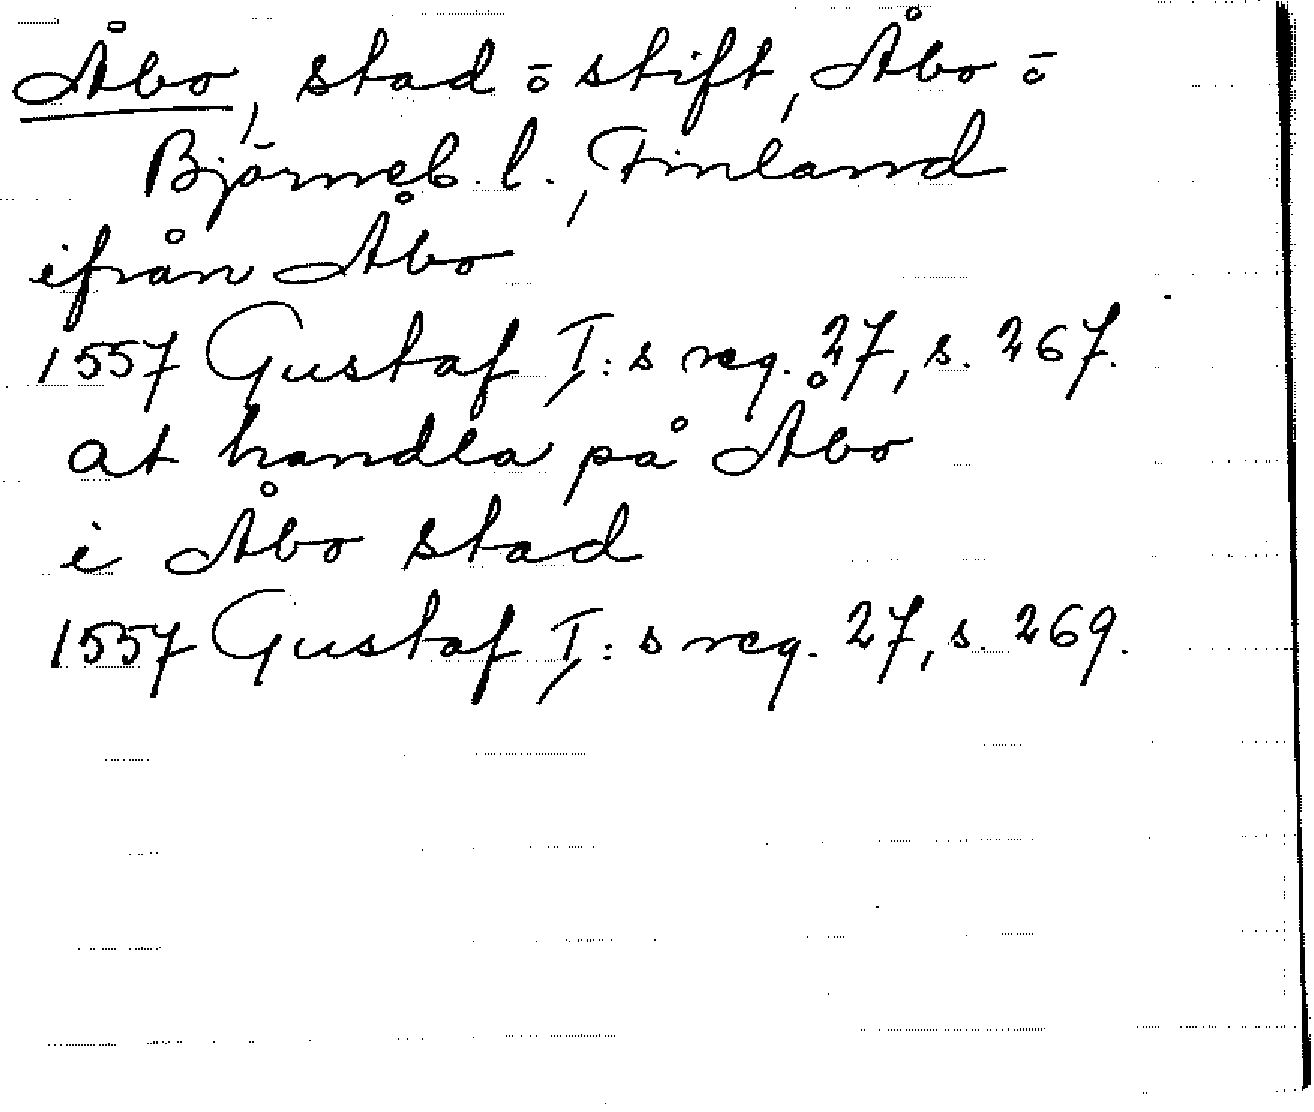 Åbo, stad o stift, Åbo o
Björneb. l., Finland
ifrån Åbo
1557 Gustaf I:s reg. 27, s. 267.
at handla på Åbo
i Åbo stad
1557 Gustaf I:s reg. 27, s. 269.